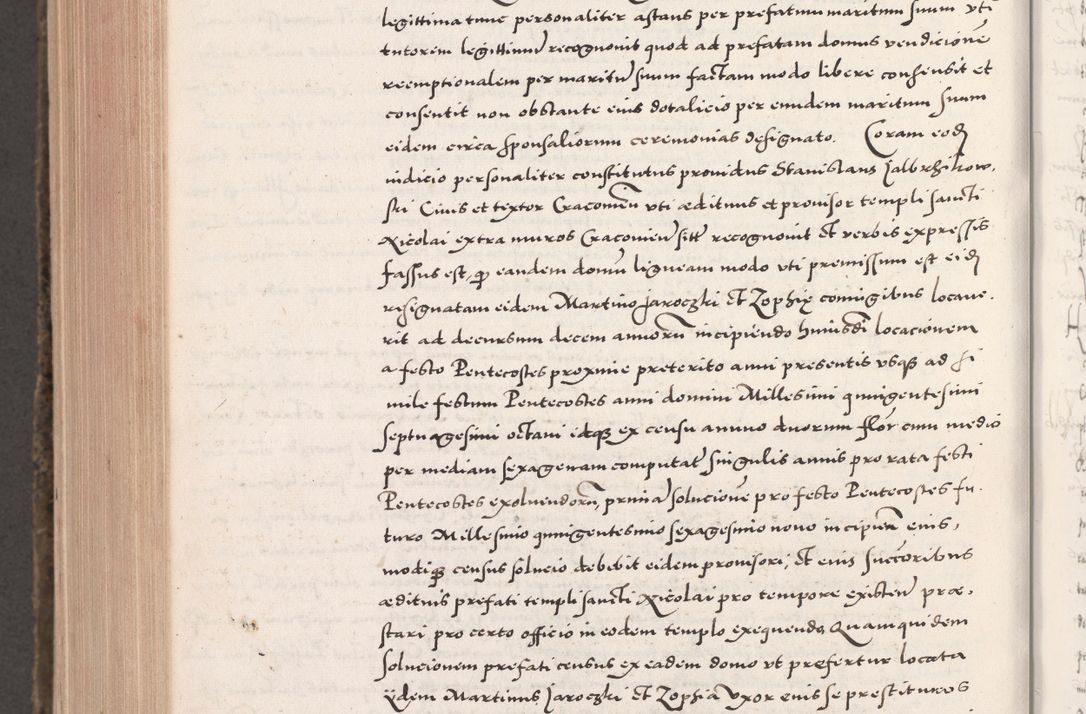 legittima tunc personaliter astans per prefatum maritum suum uti
tutorem legittimũ recognovit quod ad prefatam domus vendicionẽ
reemptionalem per maritũ suum factam modo libere consensit et
consentit non obstante eius dotalicio per eundem maritum suum
eidem circa sponsaliorum ceremonias designato. Coram eod
iudicio personaliter constitutus providus Stanislaus Jalbrzhikow,
ski Civis et textor Cracovien uti æditnus et provisor templi sancti
Nicolai extra muros Cracovien sitt recognovit et verbis expressis
fassus est, q eandem domũ ligneam modo uti premissum est eid
resignatam eidem Martino Jaroczki et Zophię coniugibus locave.
rit ad decursum decem annorũ incipiendo huiusdi locacionem
a festo Pentecostes proxime preterito anni presentis usq ad si
mile festum Pentecostes anni domini Millesimi quingentesimi
septuagesimi octavi idq ex censu annuo duorum flor cum medio
per mediam sexagenam computat singulis annis pro rata festi
Pentecostes exolvendorũ, prima solucione pro festo Pentecostes fu.
turo Millesimo quingentesimo sexagesimo nono incipien eius,
modiq census solucio debebit eidem provisori, et eius succoribus
æditnis prefati templi sancti Nicolai pro tempore existen præ,
stari pro certo officio in eodem templo exequendo, Quam quidem
solucionem prefati census ex eadem domo ut prefertur locata
ijdem Martinus Jaroczki et Zophia uxor eius se prestituros